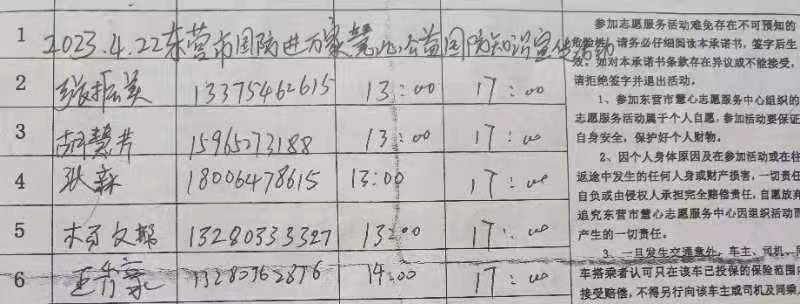 1 2023.4.22东营市国防进万家慧心公益国防知识宣传活动
2 张振美 13375462615 13:00 17:00
3 胡慧芳 15965273188 13:00 17:00
4 耿森 18006478615 13:00 17:00
5 文娜 13280333327 13:00 17:00
6 14:00 17:00
参加志愿服务活动难免存在不可预知的
危险性,请务必仔细阅读本承诺书,签字后生
效。如对本承诺书条款存在异议或不能接受,
请拒绝签字并退出活动。
1、参加东营市慧心志愿服务中心组织的
志愿服务活动属于个人自愿,参加活动要保证
自身安全,保护好个人财物。
2、因个人身体原因及在参加活动或在往
返途中发生的任何人身或财产损害,一切责任
自负或由侵权人承担完全赔偿责任,自愿放弃
追究东营市慧心志愿服务中心因组织活动而
产生的一切责任。
3、一旦发生交通意外,车主、司机、同
车搭乘者认可只在该车已投保的保险范围内
接受赔偿,不得另行向该车主或司机及同乘